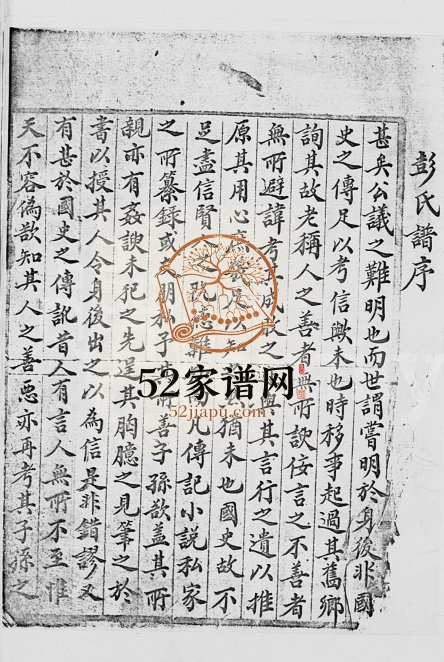 彭氏譜序
甚矣公議之難明也而世謂嘗明於身後非國
史之傳足以考信歟未也時移事起過其舊鄉
詢其故老稱人之善者無所諛佞言之不善者
無所避諱考其成敗之與其言行之遺以推
原其用心庶足以知猶未也國史故不
足盡信賢之說恐難凡傳記小說私家
之所纂録或朋私子所善子孫欲蓋其所
親亦有姦諛未死之先逞其胸臆之見筆之於
書以授其人令身後出之以為信是非錯謬又
有甚於國史之傳訛昔人有言人無所不至惟
天不容偽欲知其人之善惡亦再考其子孫之
52家谱网
52jiapu.com